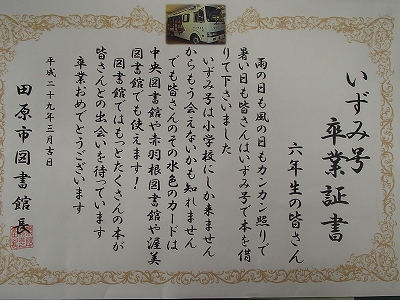 いずみ号
卒業証書
六年生の皆さん
雨の日も風の日もカンカン照りで
暑い日も皆さんはいずみ号で本を借
りて下さいました
いずみ号は小学校にしか来ません
からもう会えないかも知れません
でも皆さんのその水色のカードは
中央図書館や赤羽根図書館や渥美
図書館でも使えます！
図書館ではもっとたくさんの本が
皆さんとの出会いを待っています
卒業おめでとうございます
平成二十九年三月吉日
田原市図書館長